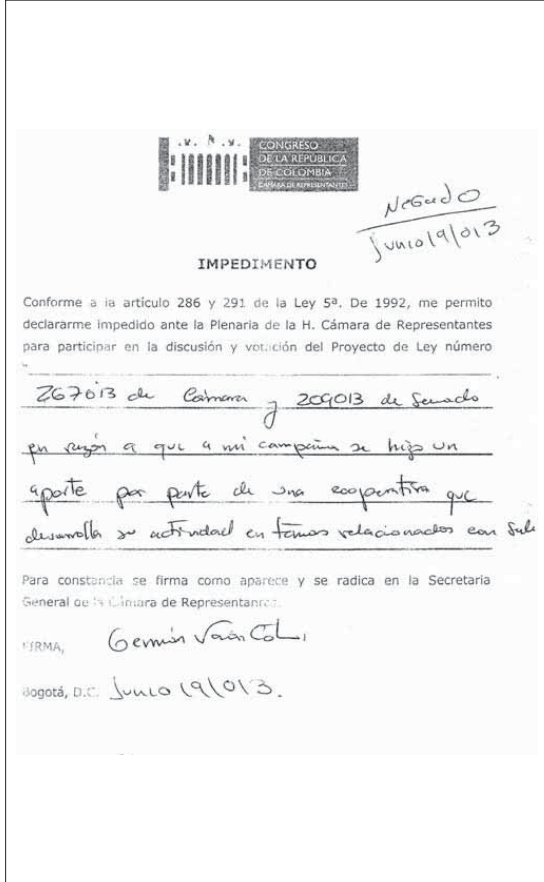 CONGRESO
DE LA REPÚBLICA
DE COLOMBIA
CÁMARA DE REPRESENTANTES
Negado
Junio 19/013
IMPEDIMENTO
Conforme a la artículo 286 y 291 de la Ley 5ª. De 1992, me permito
declararme impedido ante la Plenaria de la H. Cámara de Representantes
para participar en la discusión y votación del Proyecto de Ley número
267013 de Cámara y 209013 de Senado
en razón a que a mi campaña se hizo un
aporte por parte de una cooperativa que
desarrolla su actividad en temas relacionados con
Para constancia se firma como aparece y se radica en la Secretaria
General de la Cámara de Representantes.
FIRMA, Germán Varón
Bogotá, D.C. Junio 19/013.